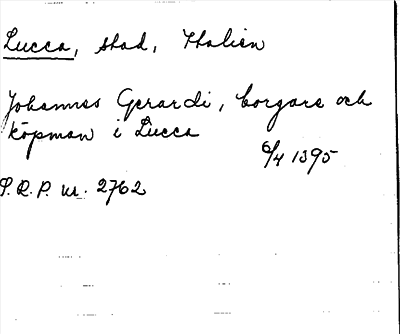 Lucca, stad, Italien
Johannes Gerardi, borgare och
köpman i Lucca
6/4 1395
S.R.P. nr. 2762